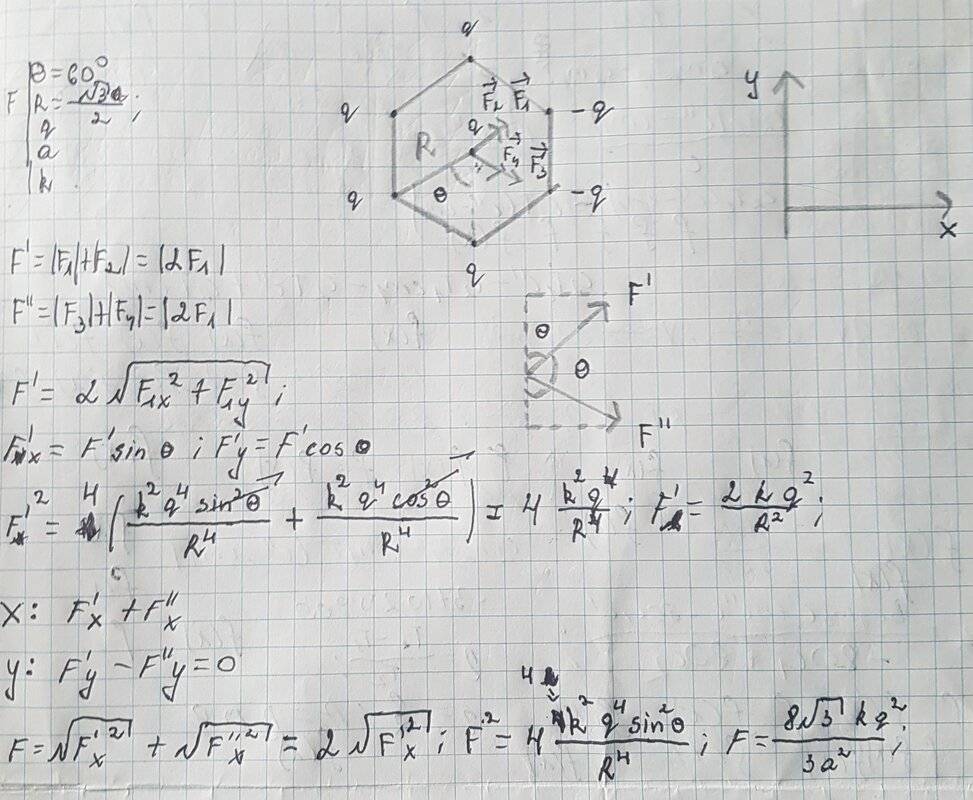 F
θ = 60°
R = √3a / 2 ;
q
a
k
q
q
q
q
-q
-q
R
θ
q
F₂ F₁
F₄ F₃
y
x
F' = |F₁|+|F₂| = |2F₁|
F'' = |F₃|+|F₄| = |2F₁|
F'
θ
θ
F''
F' = 2√(F₁ₓ² + F₁y²) ;
F'ₓ = F' sin θ ; F'y = F' cos θ
F'² = 4 ( k² q⁴ sin² θ / R⁴ + k² q⁴ cos² θ / R⁴ ) = 4 k² q⁴ / R⁴ ; F' = 2 k q² / R² ;
x: F'ₓ + F''ₓ
y: F'y − F''y = 0
4
F = √(F'ₓ²) + √(F''ₓ²) = 2√(F'ₓ²) ; F² = 4 k² q⁴ sin² θ / R⁴ ; F = 8√3 k q² / 3a² ;